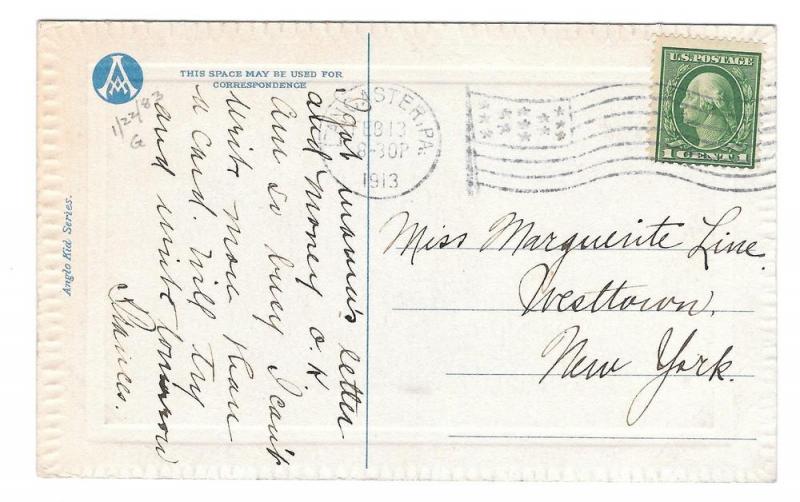 THIS SPACE MAY BE USED FOR
CORRESPONDENCE
1/22/83
G
Anglo Kid Series.
Got mama's letter
and money O K
am so busy I can't
write more than
a card. Will try
and write tomorrow
Frances.
LANCASTER, PA.
FEB 13
8-30P
1913
U.S. POSTAGE
1 CENT 1
Miss Marguerite Line.
Westtown,
New York.